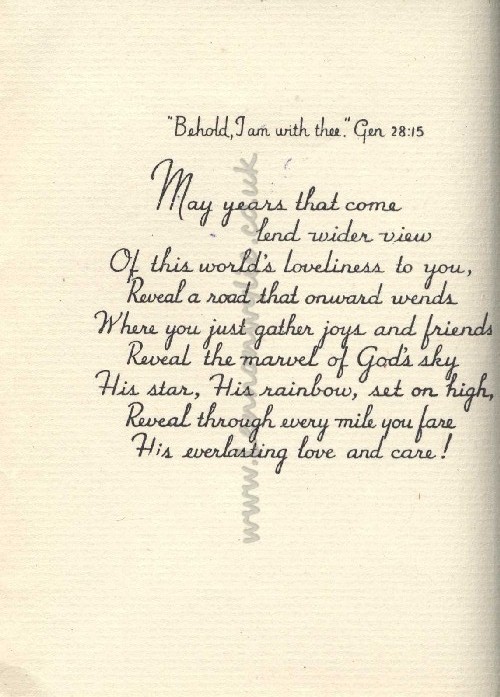 "Behold, I am with thee." Gen 28:15
May years that come
lend wider view
Of this world's loveliness to you,
Reveal a road that onward wends
Where you just gather joys and friends
Reveal the marvel of God's sky
His star, His rainbow, set on high,
Reveal through every mile you fare
His everlasting love and care!